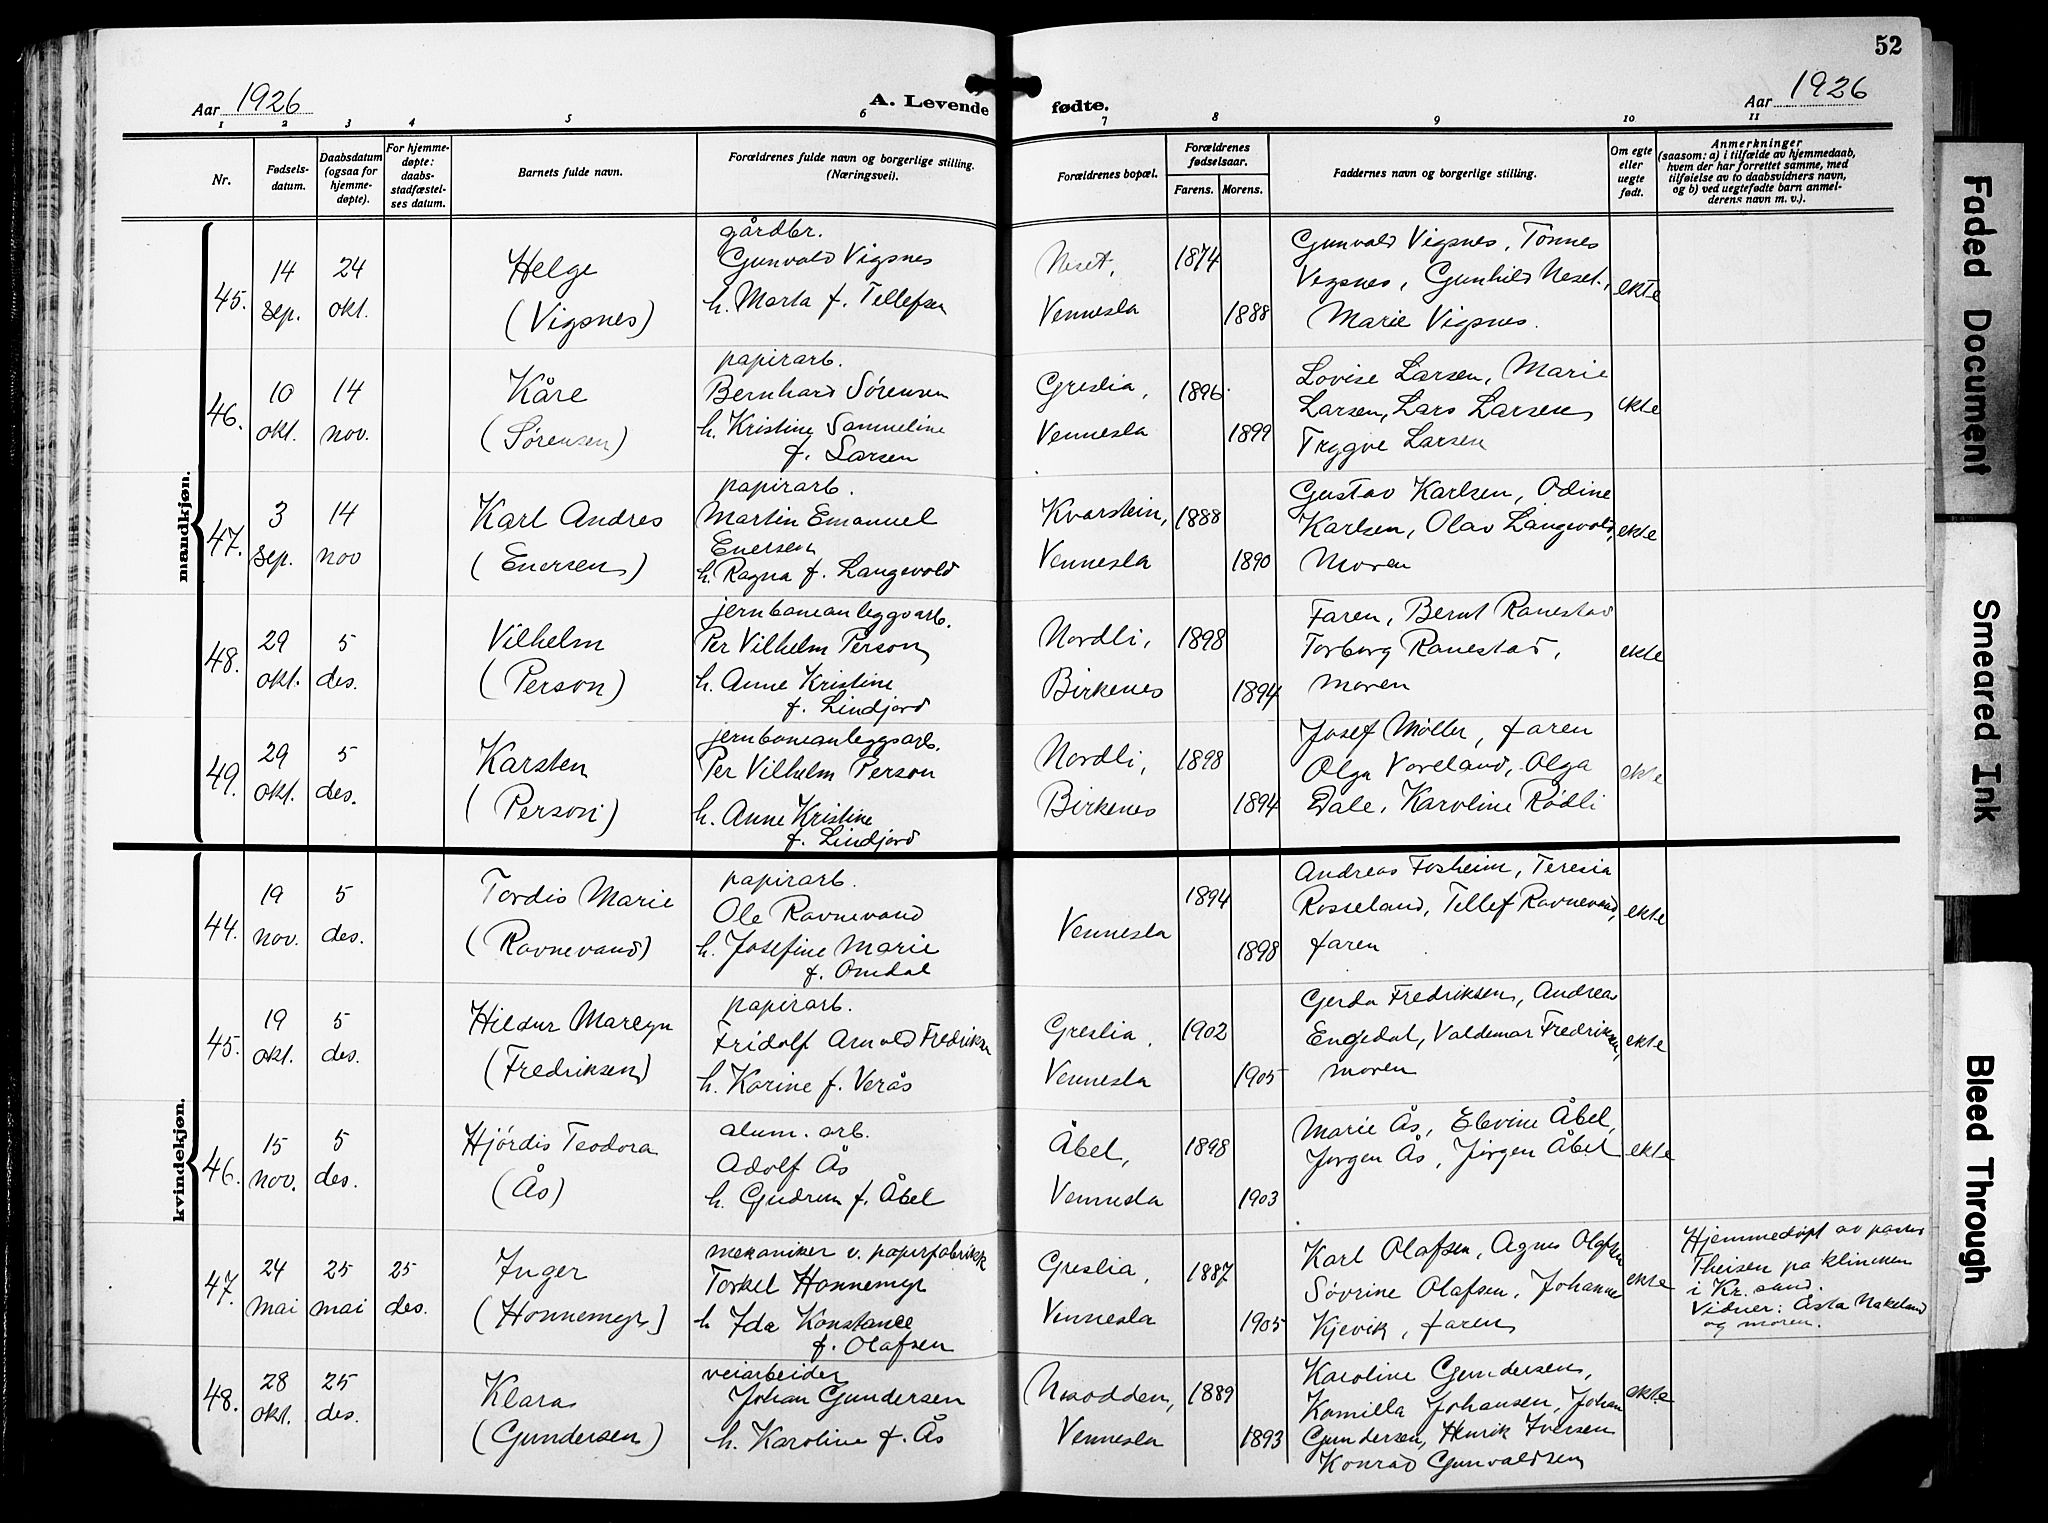 52
Aar 1926
A. Levende fødte.
Aar 1926
1 2 3 4 5 6 7 8 9 10 11
Nr.
Fødsels-
datum.
Daabsdatum
(ogsaa for
hjemme-
døpte).
For hjemme-
døpte:
daabs-
stadfæstel-
ses datum.
Barnets fulde navn.
Forældrenes fulde navn og borgerlige stilling.
(Næringsvei).
Forældrenes bopæl.
Forældrenes
fødselsaar.
Farens. Morens.
Faddernes navn og borgerlige stilling.
Om egte
eller
uegte
født.
Anmerkninger
(saasom: a) i tilfælde av hjemmedaab,
hvem der har forrettet samme, med
tilføielse av to daabsvidners navn,
og b) ved uegtefødte barn anmel-
derens navn m. v.).
mandkjøn.
45.
14
sep.
24
okt.
Helge
(Vigsnes)
gårdbr.
Gunvald Vigsnes
h. Marta f. Tellefsen
Neset,
Vennesla
1874
1888
Gunvald Vigsnes, Tønnes
Vigsnes, Gunhild Neset,
Marie Vigsnes.
ekte
46.
10
okt.
14
nov.
Kåre
(Sørensen)
papirarb.
Bernhard Sørensen
h. Kristine Samueline
f. Larsen
Greslia,
Vennesla
1896
1899
Lovise Larsen, Marie
Larsen, Lars Larsen
Trygve Larsen
ekte
47.
3
sep.
14
nov
Karl Andres
(Enersen)
papirarb.
Martin Emanuel
Enersen
h. Ragna f. Langevold
Kvarstein,
Vennesla
1888
1890
Gustav Karlsen, Odine
Karlsen, Olav Langevold,
Moren
ekte
48.
29
okt.
5
des.
Vilhelm
(Person)
jernbaneanleggsarb.
Per Vilhelm Person
h. Anne Kristine
f. Lindjord
Nordli,
Birkenes
1898
1894
Faren, Bernt Ranestad
Torborg Ranestad,
moren
ekte
49.
29
okt.
5
des.
Karsten
(Person)
jernbaneanleggsarb.
Per Vilhelm Person
h. Anne Kristine
f. Lindjord
Nordli,
Birkenes
1898
1894
Josef Møller, faren
Olga Voreland, Olga
Dale, Karoline Rødli
ekte
kvindekjøn.
44.
19
nov.
5
des.
Tordis Marie
(Ravnevand)
papirarb.
Ole Ravnevand
h. Josefine Marie
f. Omdal
Vennesla
1894
1898
Andreas Fosheim, Teresia
Rosseland, Tellef Ravnevand,
faren
ekte
45.
19
okt.
5
des.
Hildur Maregn
(Fredriksen)
papirarb.
Fridolf Arnold Fredriksen
h. Karine f. Verås
Greslia,
Vennesla
1902
1905
Gerda Fredriksen, Andreas
Engedal, Valdemar Fredriksen,
moren
ekte
46.
15
nov.
5
des.
Hjørdis Teodora
(Ås)
alum. arb.
Adolf Ås
h. Gudrun f. Åbel
Åbel,
Vennesla
1898
1903
Marie Ås, Elevine Åbel,
Jørgen Ås, Jørgen Åbel
ekte
47.
24
mai
25
mai
25
des.
Inger
(Honnemyr)
mekaniker v. papirfabrikk
Torkel Honnemyr
h Ida Konstance
f. Olafsen
Greslia,
Vennesla
1887
1905
Karl Olafsen, Agnes Olafsen
Søvrine Olafsen, Johanne
Kjevik, faren
ekte
Hjemmedøpt av pastor
Theisen på klinikken
i Kr.sand.
Vidner: Åsta Nakeland
og moren.
48.
28
okt.
25
des.
Klara
(Gundersen)
veiarbeider
Johan Gundersen
h. Karoline f. Ås
Moodden,
Vennesla
1889
1893
Karoline Gundersen,
Kamilla Johansen, Johan
Gundersen, Henrik Iversen
Konrad Gunvaldsen
ekte
Faded Document
Smeared Ink
Bleed Through